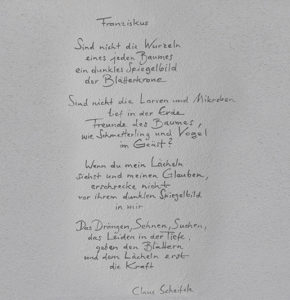 Franziskus
Sind nicht die Wurzeln
eines jeden Baumes
ein dunkles Spiegelbild
der Blätterkrone
Sind nicht die Larven und Mikroben
tief in der Erde
Freunde des Baumes,
wie Schmetterling und Vogel
im Geäst?
Wenn du mein Lächeln
siehst und meinen Glauben,
erschrecke nicht
vor ihrem dunklen Spiegelbild
in mir
Das Drängen, Sehnen, Suchen,
das Leiden in der Tiefe,
geben den Blättern
und dem Lächeln erst
die Kraft
Claus